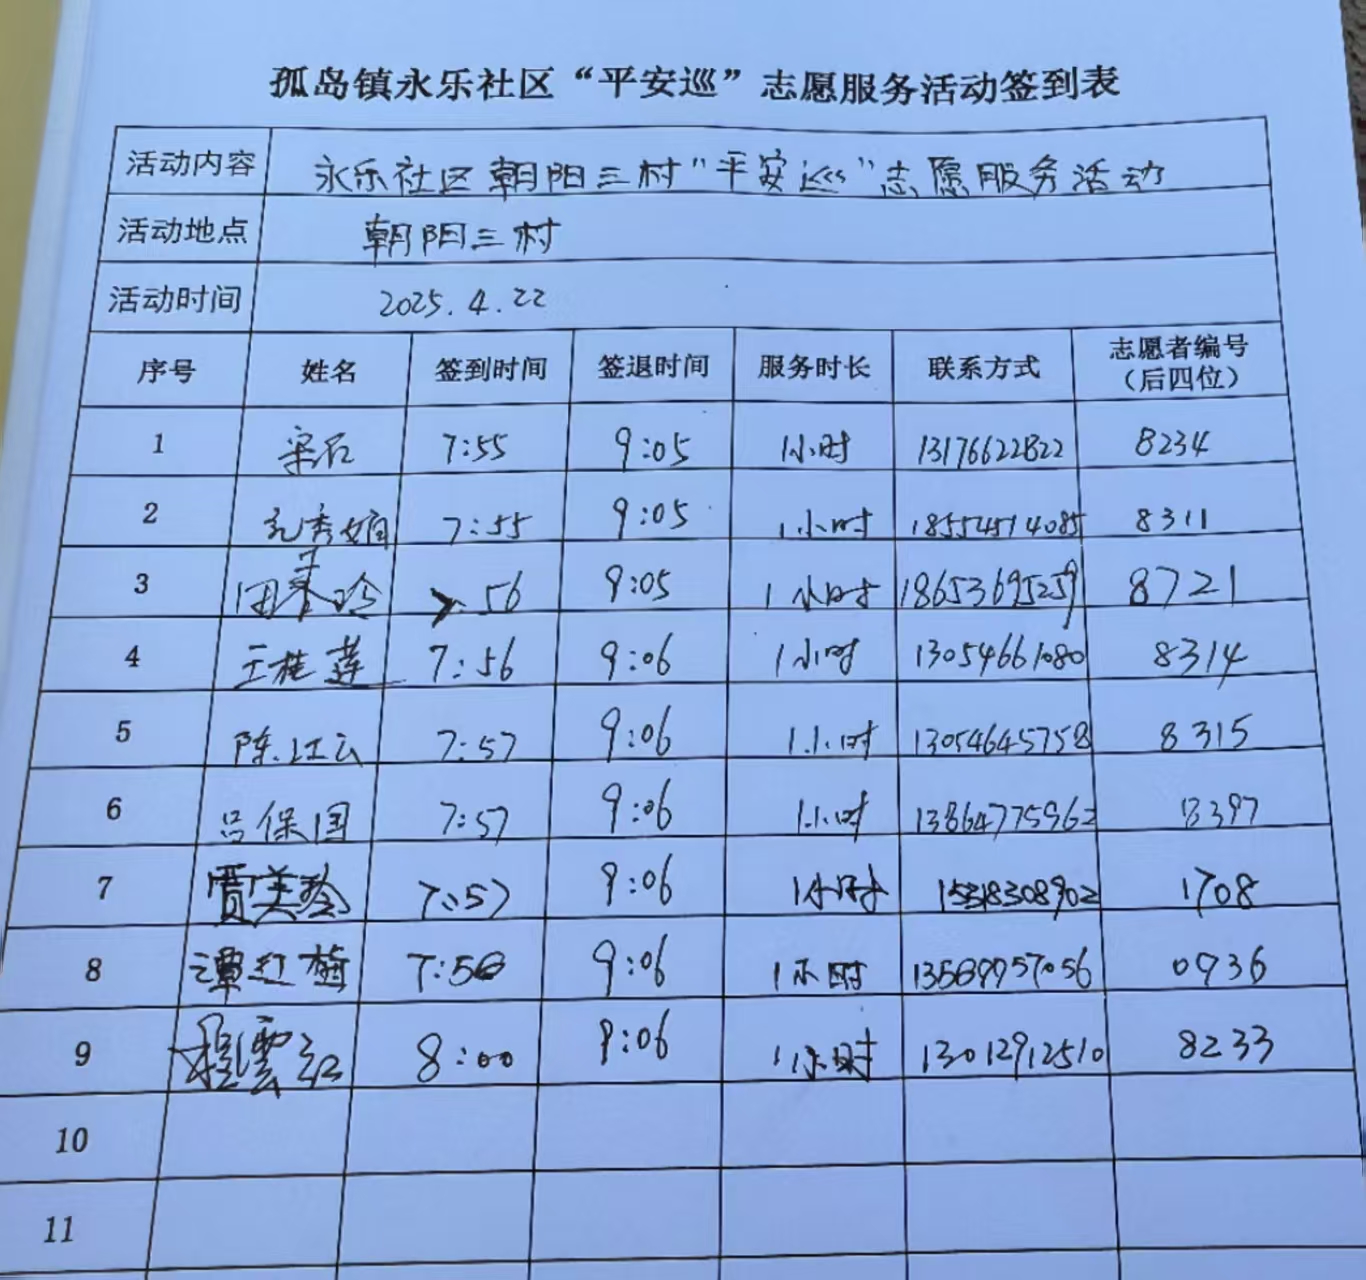 孤岛镇永乐社区“平安巡”志愿服务活动签到表
活动内容 永乐社区朝阳三村“平安巡”志愿服务活动
活动地点 朝阳三村
活动时间 2025.4.22
序号 姓名 签到时间 签退时间 服务时长 联系方式 志愿者编号（后四位）
1 梁石 7:55 9:05 1小时 13176622822 8234
2 孔秀娟 7:55 9:05 1小时 18554514085 8311
3 56 9:05 1小时 18653695259 8721
4 王桂莲 7:56 9:06 1小时 13054661080 8314
5 陈江云 7:57 9:06 1小时 13054645758 8315
6 吕保国 7:57 9:06 1小时 13864775962 8397
7 贾美玲 7:57 9:06 1小时 15318308902 1708
8 谭红梅 7:58 9:06 1小时 13589957056 0936
9 程雲红 8:00 9:06 1小时 13012912510 8233
10
11